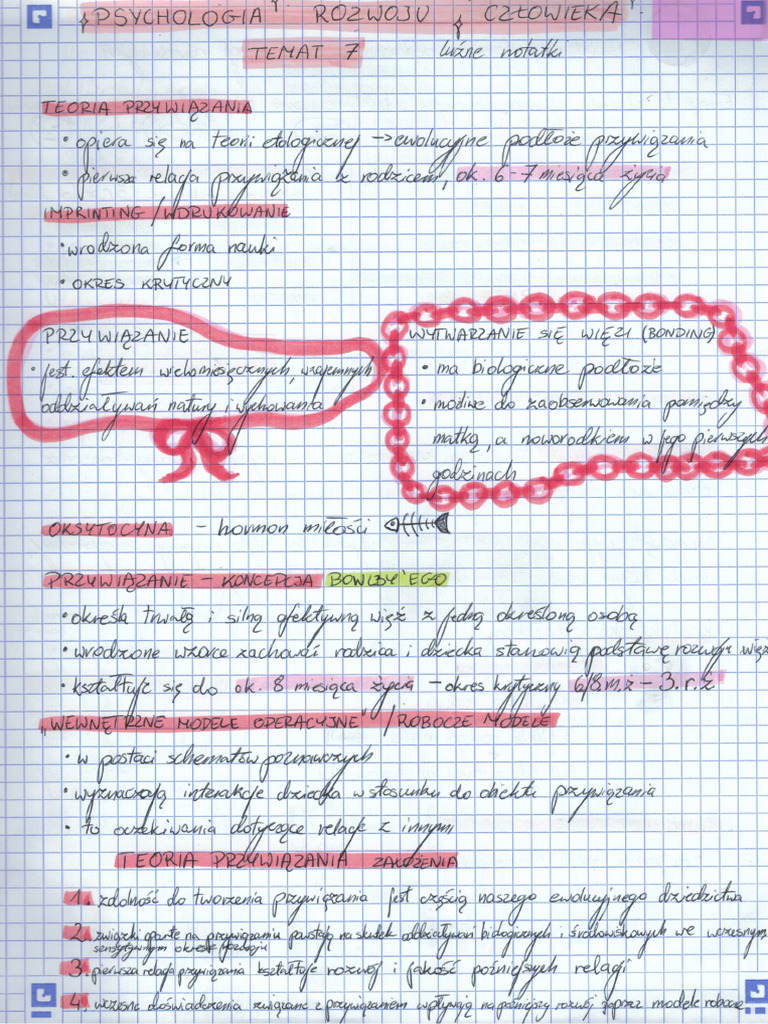 PSYCHOLOGIA ROZWOJU CZŁOWIEKA
TEMAT 7 luźne notatki
TEORIA PRZYWIĄZANIA
• opiera się na teorii etologicznej → ewolucyjne podłoże przywiązania
• pierwsza relacja przywiązania z rodzicem, ok. 6-7 miesiąca życia
IMPRINTING / WDRUKOWANIE
• wrodzona forma nauki
• OKRES KRYTYCZNY
PRZYWIĄZANIE
• jest efektem wielomiesięcznych, wzajemnych
oddziaływań natury i wychowania
WYTWARZANIE SIĘ WIĘZI (BONDING)
• ma biologiczne podłoże
• możliwe do zaobserwowania pomiędzy
matką, a noworodkiem w jego pierwszych
godzinach
OKSYTOCYNA - hormon miłości
PRZYWIĄZANIE - KONCEPCJA BOWLBY'EGO
• określa trwałą i silną afektywną więź z jedną określoną osobą
• wrodzone wzorce zachowań rodzica i dziecka stanowią podstawę rozwoju więz
• kształtuje się do ok. 8 miesiąca życia - okres krytyczny 6/8 m.ż - 3. r.ż
„WEWNĘTRZNE MODELE OPERACYJNE" / ROBOCZE MODELE
• w postaci schematów poznawczych
• wyznaczają interakcje dziecka w stosunku do obiektu przywiązania
• to oczekiwania dotyczące relacji z innymi
TEORIA PRZYWIĄZANIA ZAŁOŻENIA
1. zdolność do tworzenia przywiązania jest częścią naszego ewolucyjnego dziedzictwa
2. związki oparte na przywiązaniu powstają na skutek oddziaływań biologicznych i środowiskowych we wczesnym
sensytywnym okresie rozwoju
3. pierwsza relacja przywiązania kształtuje rozwój i jakość późniejszych relacji
4. wczesne doświadczenia związane z przywiązaniem wpływają na późniejszy rozwój poprzez modele robocze